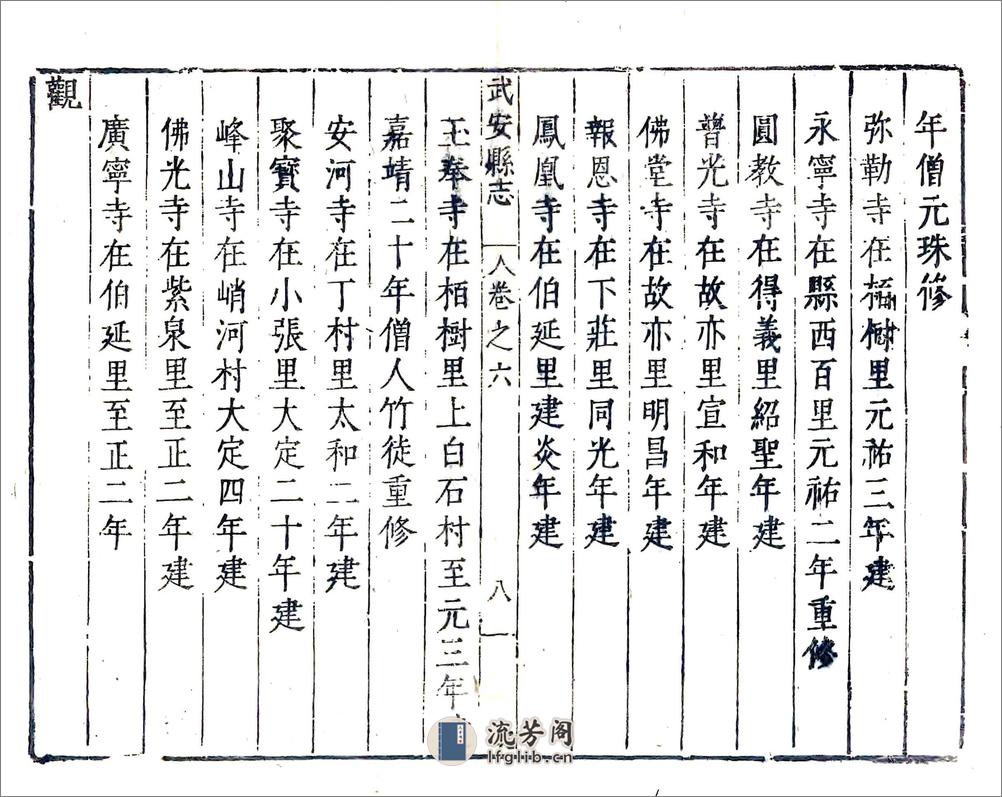 年僧元珠修
弥勒寺在栢樹里元祐三年建
永寧寺在縣西百里元祐二年重修
圓教寺在得義里紹聖年建
普光寺在故亦里宣和年建
佛堂寺在故亦里明昌年建
報恩寺在下莊里同光年建
鳳凰寺在伯延里建炎年建
武安縣志
卷之六
八
玉奉寺在栢樹里上白石村至元三年
嘉靖二十年僧人竹徒重修
安河寺在丁村里太和二年建
聚寶寺在小張里大定二十年建
峰山寺在峭河村大定四年建
佛光寺在紫泉里至正二年建
廣寧寺在伯延里至正二年
觀
流芳阁
lfglib.cn